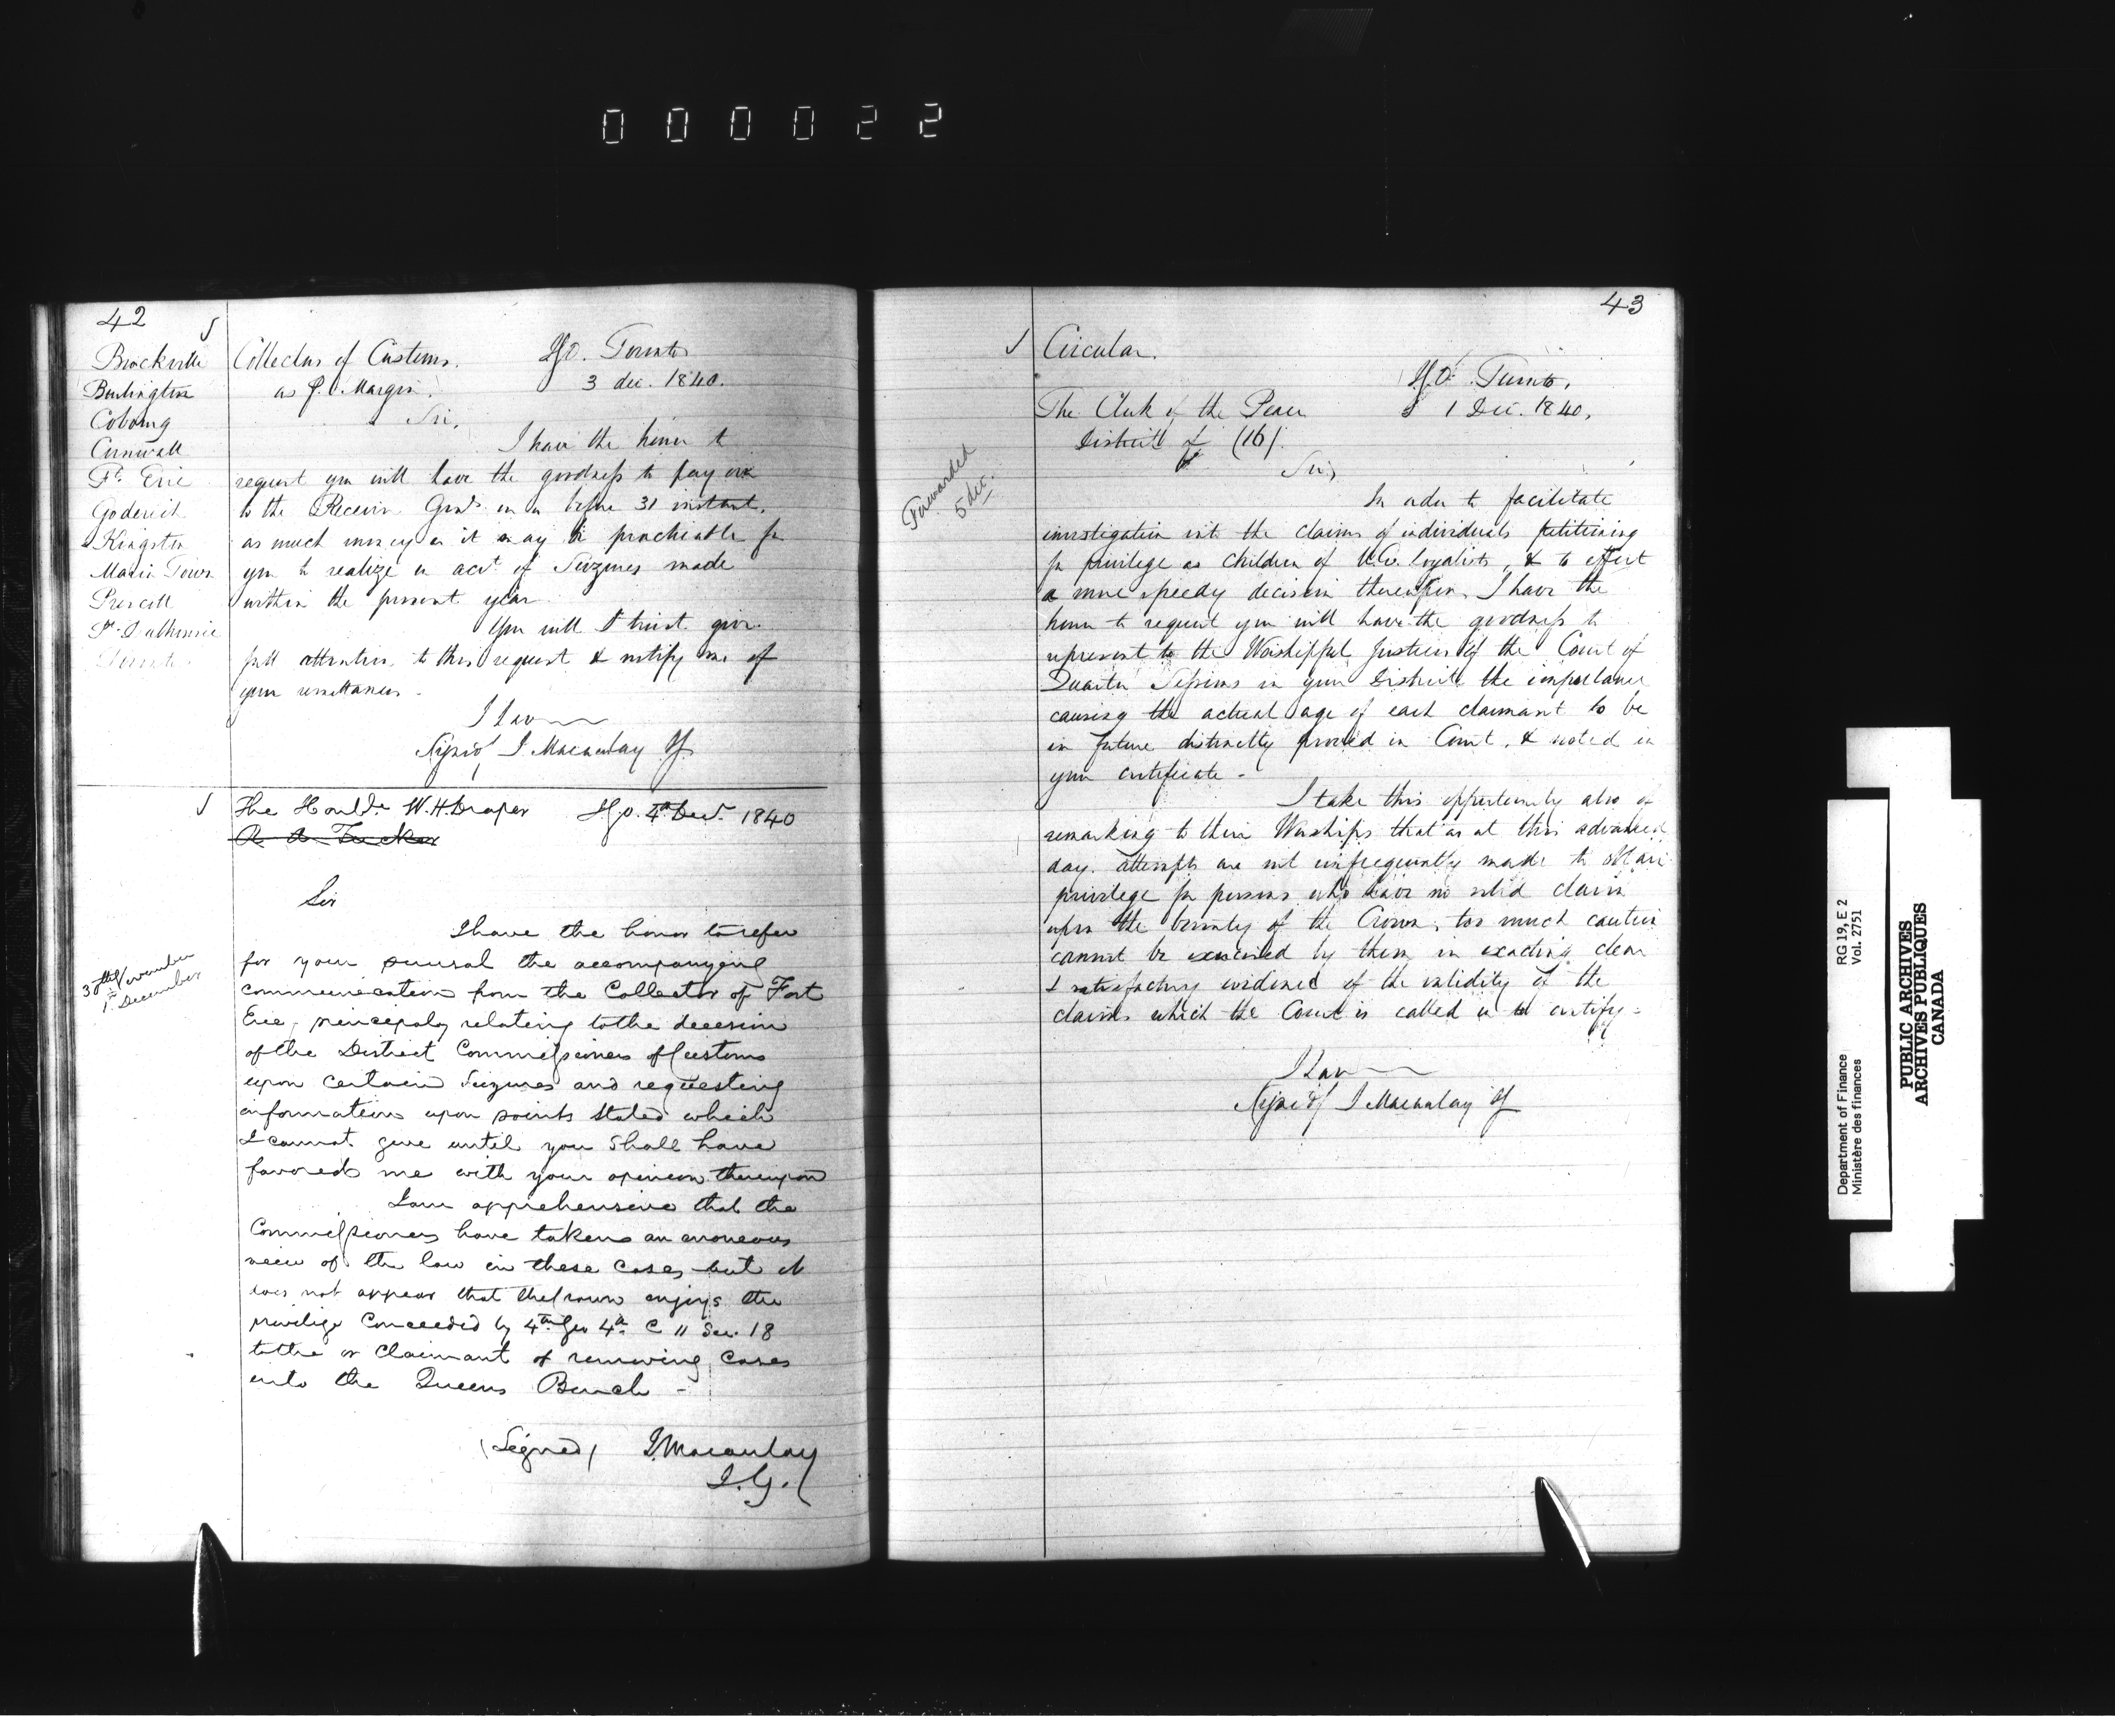 000022
42
Brockville
Burlington
Cobourg
Cornwall
Ft. Erie
Goderich
Kingston
Maria Town
Prescott
Pt. Dalhousie
Toronto
Collectors of Customs.
as p. Margin.
I.G.O. Toronto
3 dec. 1840.
Sir,
I have the honor to
request you will have the goodness to pay over
to the Receiver Genl. on or before 31 instant,
as much money as it may be practicable for
you to realize on acct. of Seizures made
within the present year
You will I trust give
full attention to this request & notify me of
your remittances.
I have
Signed J Macaulay
The Honble. W. H. Draper
I.G.O. 4th Decr. 1840
R A Tucker
30th November
1st December
Sir
I have the honor to refer
for your perusal the accompanying
communication from the Collector of Fort
Erie, principaly relating to the decision
of the District Commissioners of Customs
upon certain Seizures and requesting
information upon points stated which
I cannot give until you shall have
favored me with your opinion thereupon
I am apprehensive that the
Commissioners have taken an erroneous
view of the law in these cases but it
does not appear that the Crown enjoys the
privilege Conceeded by 4th Geo 4th C 11 Sec. 18
to the or Claimant of removing Cases
into the Queens Bench -
(Signed) J. Macaulay
I.G.
43
Circular.
I.G.O. Toronto,
1 Dec. 1840,
The Clerk of the Peace
District of (16)
Forwarded
5 dec.
Sir,
In order to facilitate
investigation into the claims of individuals petitioning
for privilege as children of U.E. loyalists, & to effect
a more speedy decision thereupon, I have the
honor to request you will have the goodness to
represent to the Worshipful Justices of the Court of
Quarter Sessions in your District the importance
causing the actual age of each claimant to be
in future distinctly proved in Court, & noted in
your certificate -
I take this opportunity also of
remarking to their Worships that as at this advanced
day attempts are not unfrequently made to obtain
privilege for persons who have no valid claim
upon the bounty of the Crown, too much caution
cannot be exercised by them in exacting clear
& satisfactory evidence of the validity of the
claims which the Court is called on to certify -
I have
Signed J Macaulay
RG 19, E 2
Vol. 2751
Department of Finance
Ministère des finances
PUBLIC ARCHIVES
ARCHIVES PUBLIQUES
CANADA